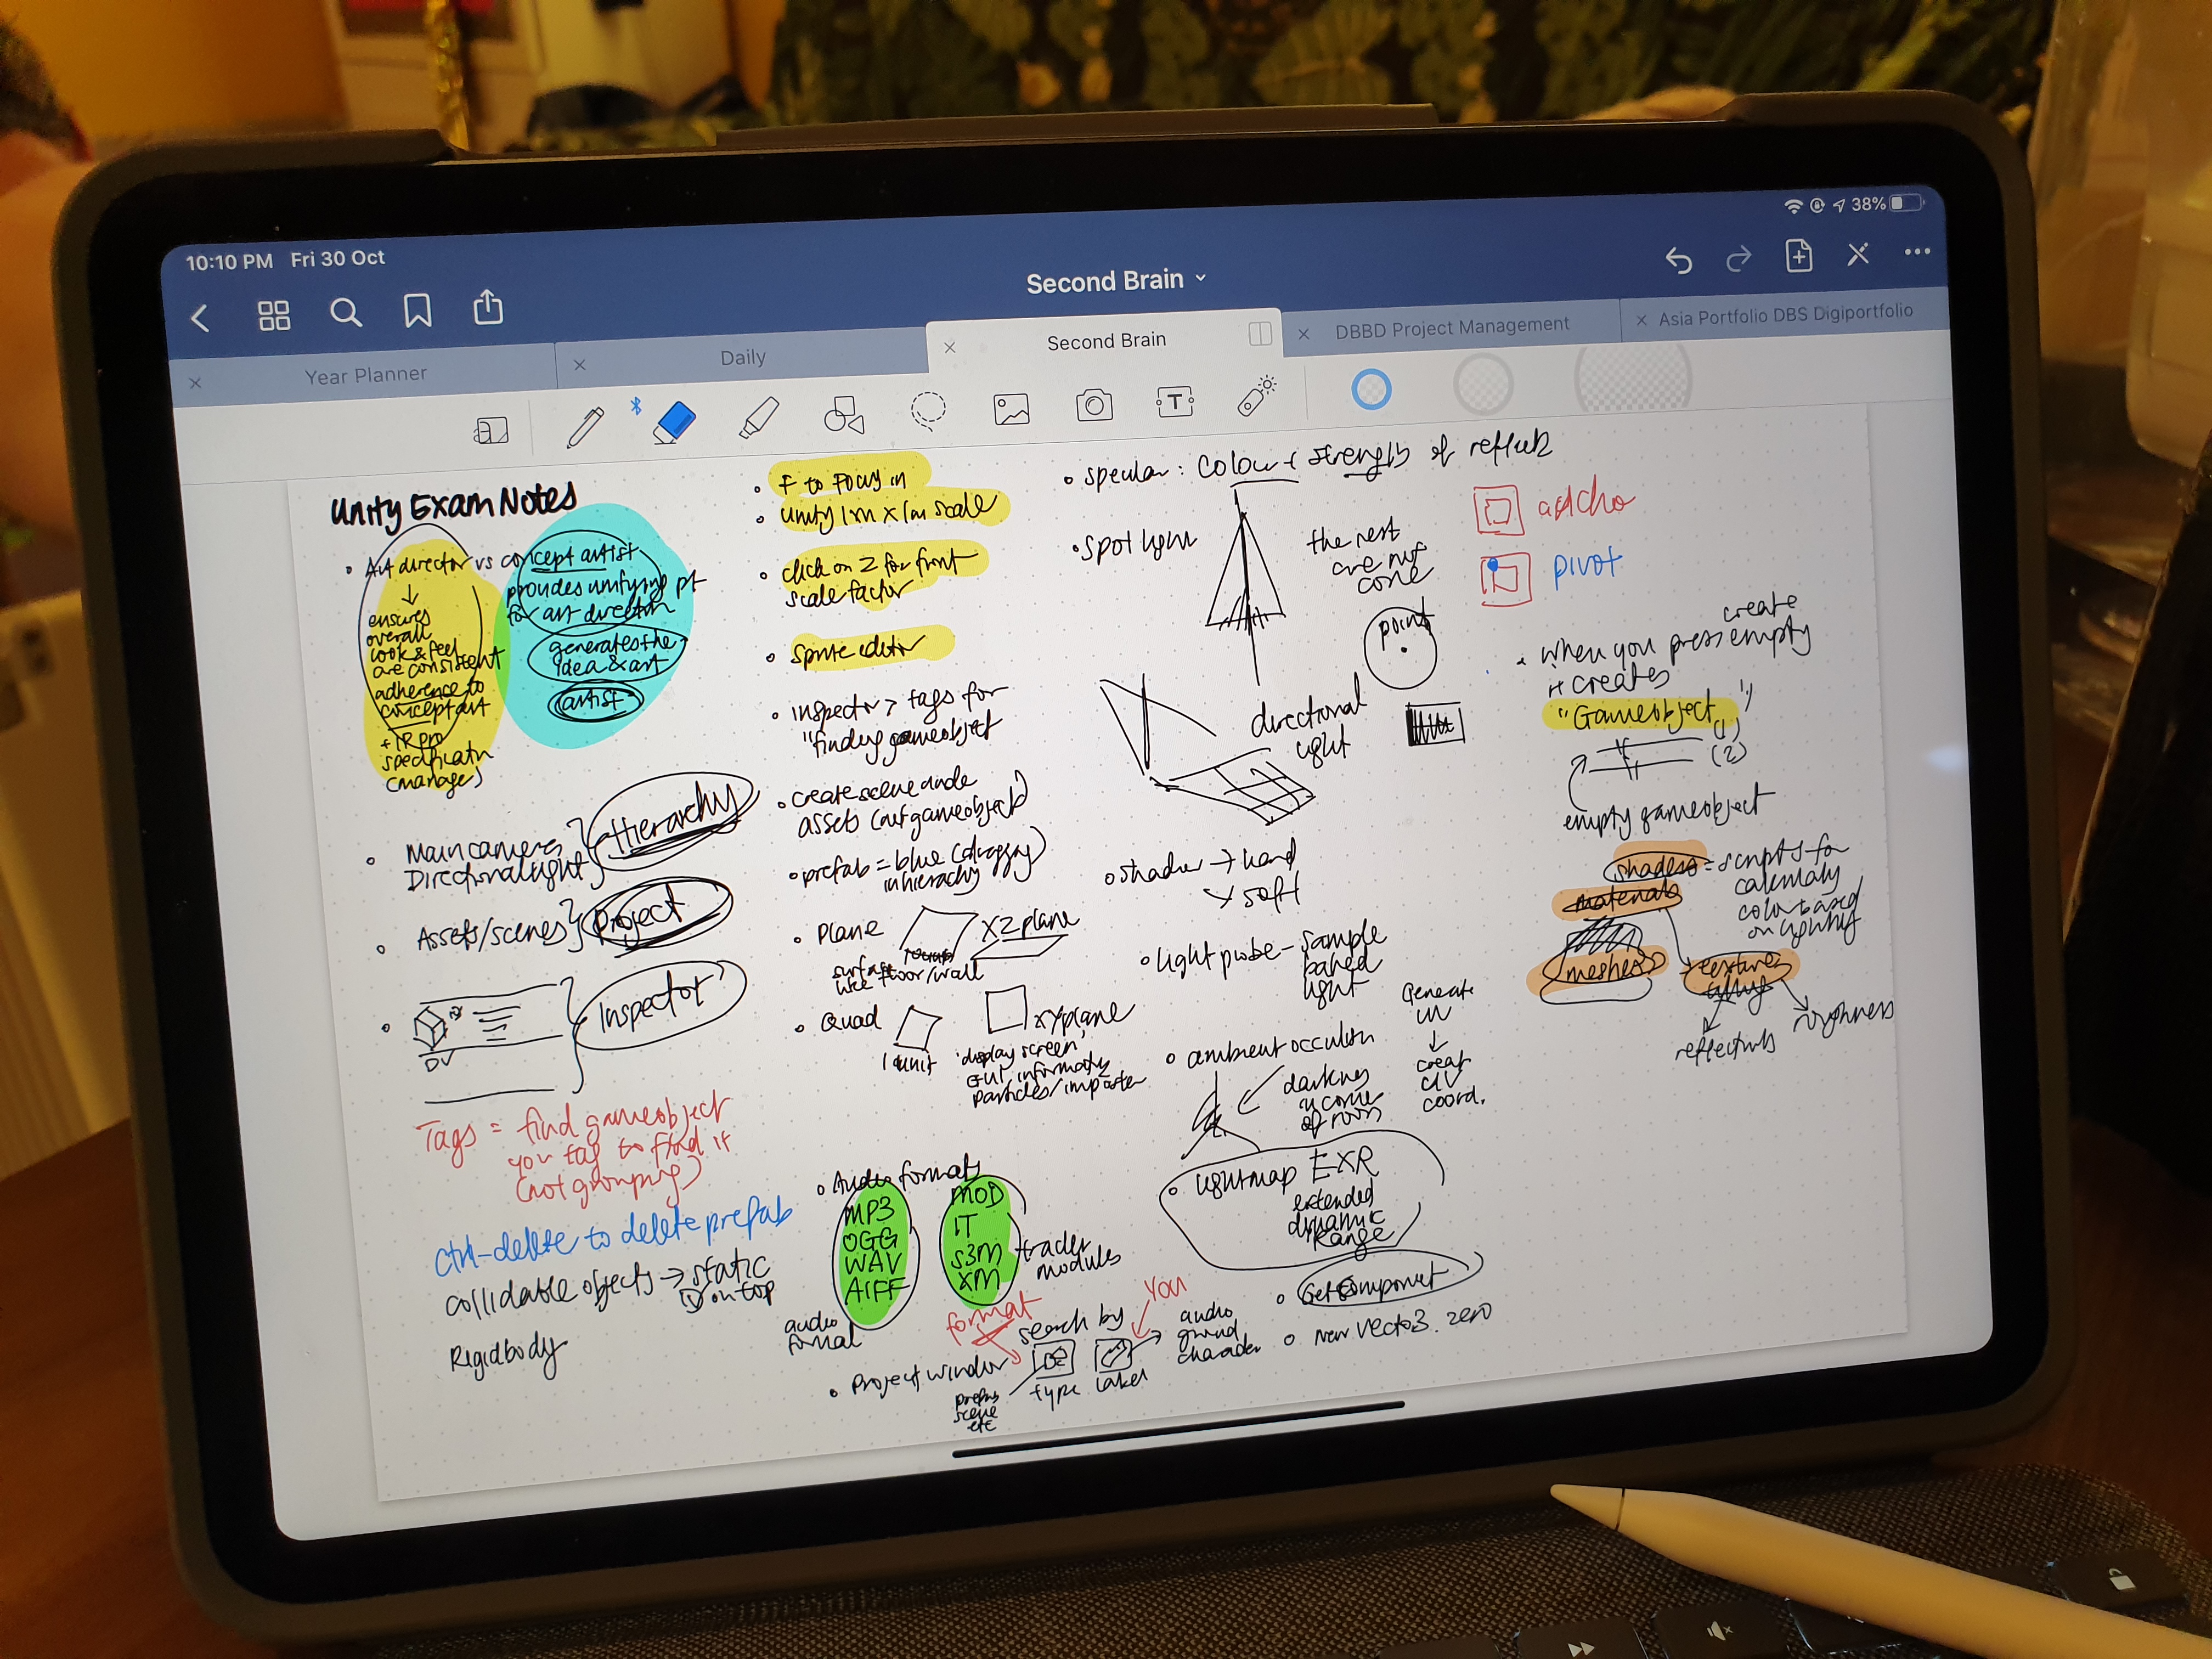 10:10 PM Fri 30 Oct
38%
Second Brain
Year Planner
Daily
Second Brain
DBBD Project Management
Asia Portfolio DBS Digiportfolio
Unity Exam Notes
Art director vs concept artist
ensures
overall
look & feel
are consistent
adherence to
concept art
+ IR pro
(manager)
provides unifying pt
for art direction
generates the
idea & art
artist
Main camera
Directional light
Hierarchy
Assets/scenes
Project
Inspector
Tags = find gameobject
you tag to find it
(not grouping)
ctrl-delete to delete prefab
collidable objects → static
on top
Rigidbody
F to Focus in
Unity 1m x 1m scale
click on Z for front
scale factor
Sprite editor
inspector > tags for
"finding gameobject
create scene
assets (not gameobject)
prefab = blue (dragging)
in hierarchy
Plane
XZ plane
surface
like floor/wall
Quad
1 unit
xy plane
display screen,
GUI, information
particles/imposter
Audio formats
MP3
OGG
WAV
AIFF
audio
format
MOD
IT
S3M
XM
modules
format
search by
You
Project window
type
label
scene
etc
audio
specular : colour + strength of
spotlight
the rest
are not
cone
point
directional
light
hard
soft
light probe - sample
baked
light
Generate
UV
↓
creat
UV
coord.
ambient
of room
lightmap EXR
extended
dynamic
Range
Get component
new Vecto3. zero
pivot
create
when you press empty
it creates
"Gameobject"
(1)
(2)
empty gameobject
shaders = scripts for
color based
on lighting
materials
meshes
roughness